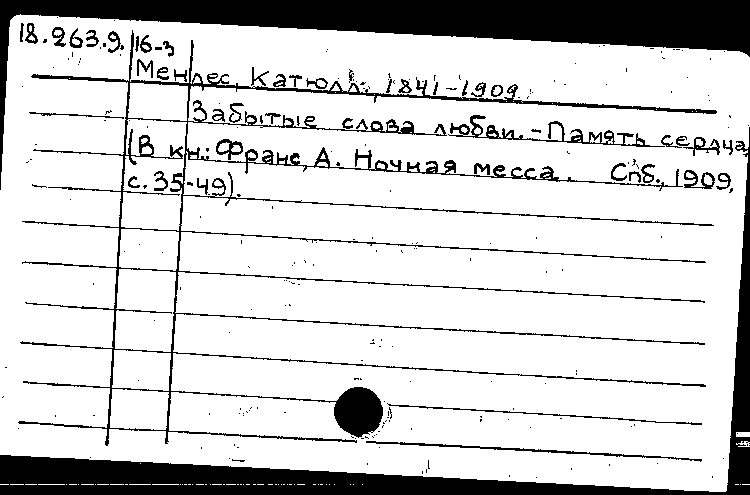 18.263.9. 16-3
Мендес, Катюлл., 1841-1909
Забытые слова любви. - Память сердца,
(В кн.: Франс, А. Ночная месса. Спб., 1909,
с. 35-49).